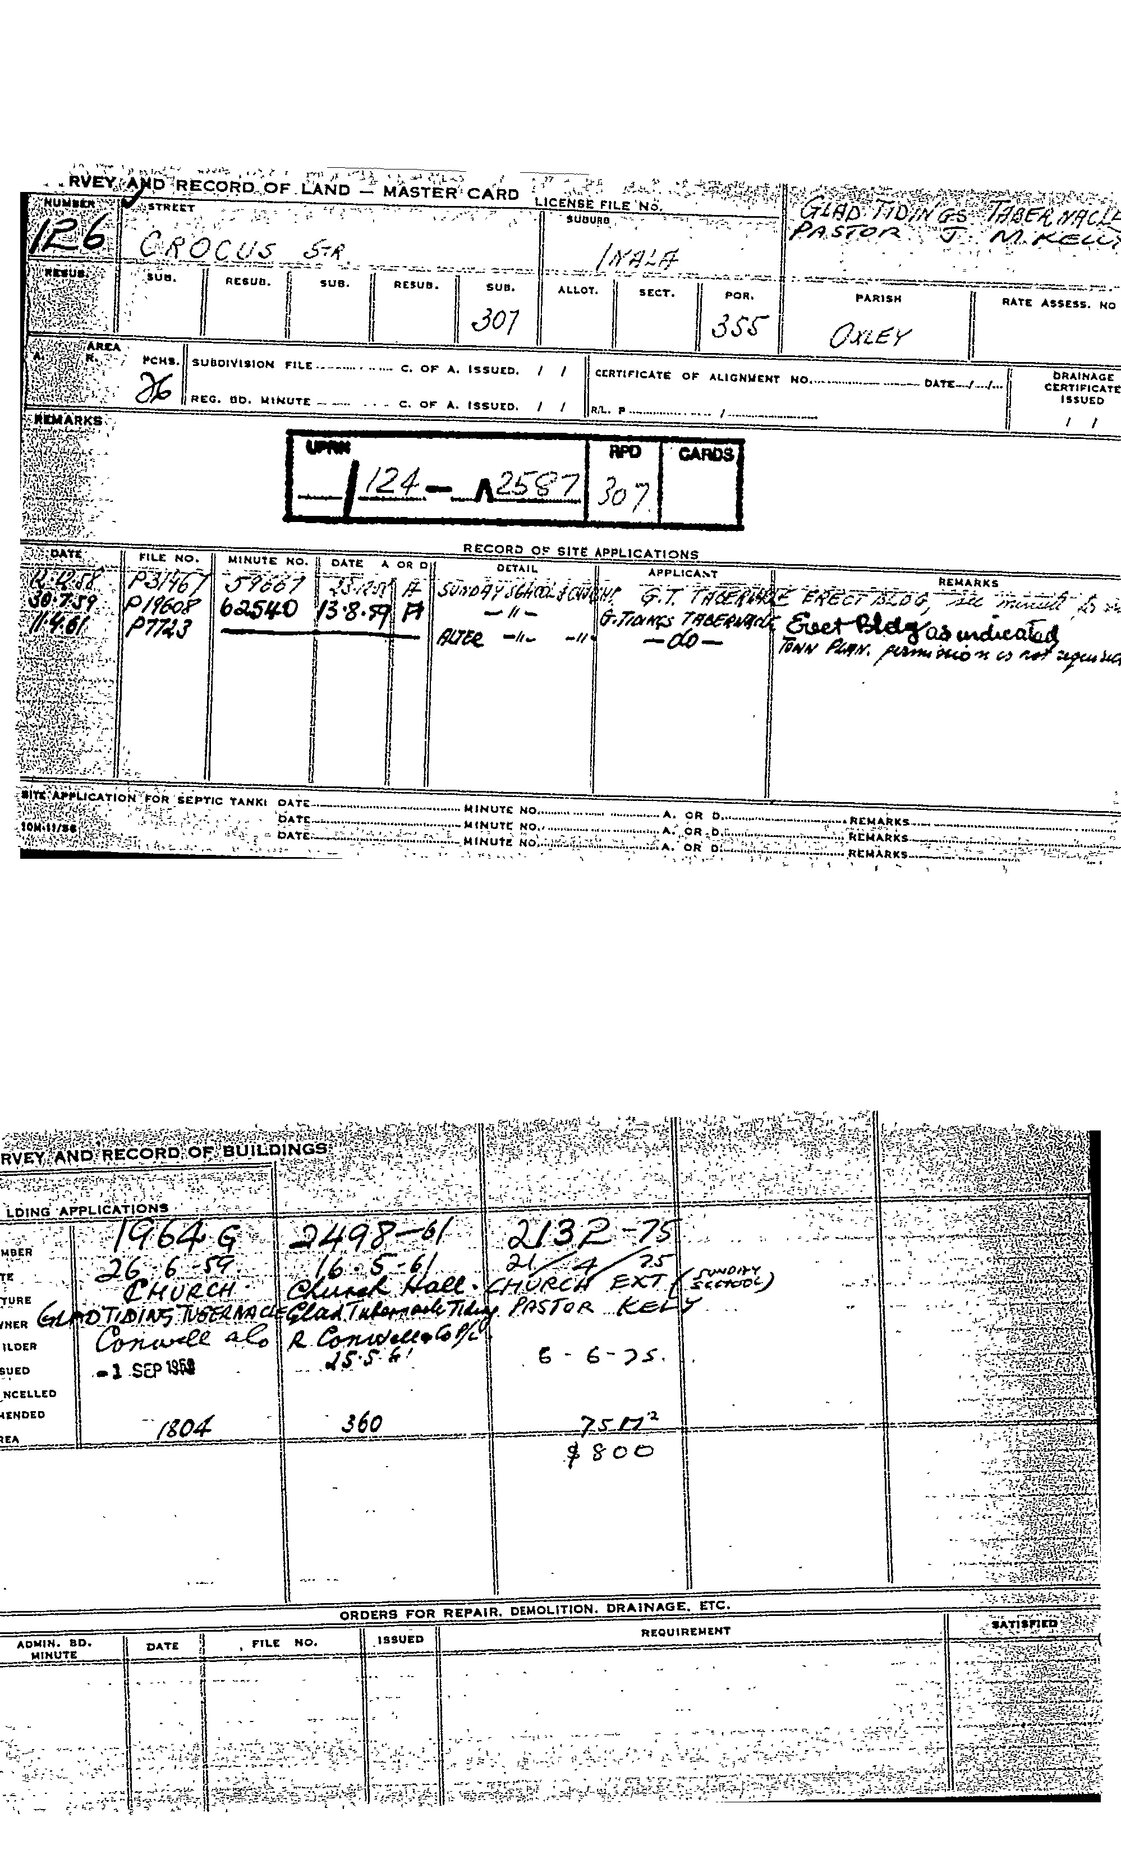 RVEY AND RECORD OF LAND — MASTER CARD LICENSE FILE No.
GLAD TIDINGS TABERNACLE
PASTOR J. M. KELLY
NUMBER STREET SUBURB
126 CROCUS STR. INALA
RESUB. SUB. RESUB. SUB. RESUB. SUB. ALLOT. SECT. POR. PARISH RATE ASSESS. NO
307 355 OXLEY
AREA
A. R. PCHS. SUBDIVISION FILE C. OF A. ISSUED. / / CERTIFICATE OF ALIGNMENT NO. DATE / / DRAINAGE CERTIFICATE ISSUED
26 REG. BD. MINUTE C. OF A. ISSUED. / / R/L. P / / /
REMARKS
UPRN RPD CARDS
/ 124 — 2587 307
RECORD OF SITE APPLICATIONS
DATE FILE NO. MINUTE NO. DATE A OR D DETAIL APPLICANT REMARKS
12.12.58 P31467 59667 A SUNDAY SCHOOL & G.T. TABERNACLE ERECT BLDG, see minute
30.7.59 P19608 62540 13.8.59 A —"— G.TIDINGS TABERNACLE Erect Bldg as indicated
11.4.61 P7723 ALTER —"— —"— —do— TOWN PLAN. permission is not required
SITE APPLICATION FOR SEPTIC TANK: DATE MINUTE NO. A. OR D. REMARKS
10M-11/56 DATE MINUTE NO. A. OR D. REMARKS
DATE MINUTE NO. A. OR D. REMARKS
RVEY AND RECORD OF BUILDINGS
LDING APPLICATIONS
MBER 1964 G 2498-61 2132-75
TE 26-6-59 16-5-61 21/4/75
TURE CHURCH. Church Hall. CHURCH EXT (SUNDAY SCHOOL)
WNER GLAD TIDINS TABERNACLE Glad Tabernacle Tidings PASTOR KELY
ILDER Conwell & Co R. Conwell & Co P/L
SUED -1 SEP 1959 25.5.61 6-6-75.
NCELLED
MENDED
REA 1804 360 75 M²
$800
ORDERS FOR REPAIR, DEMOLITION, DRAINAGE, ETC.
ADMIN. BD. MINUTE DATE FILE NO. ISSUED REQUIREMENT SATISFIED